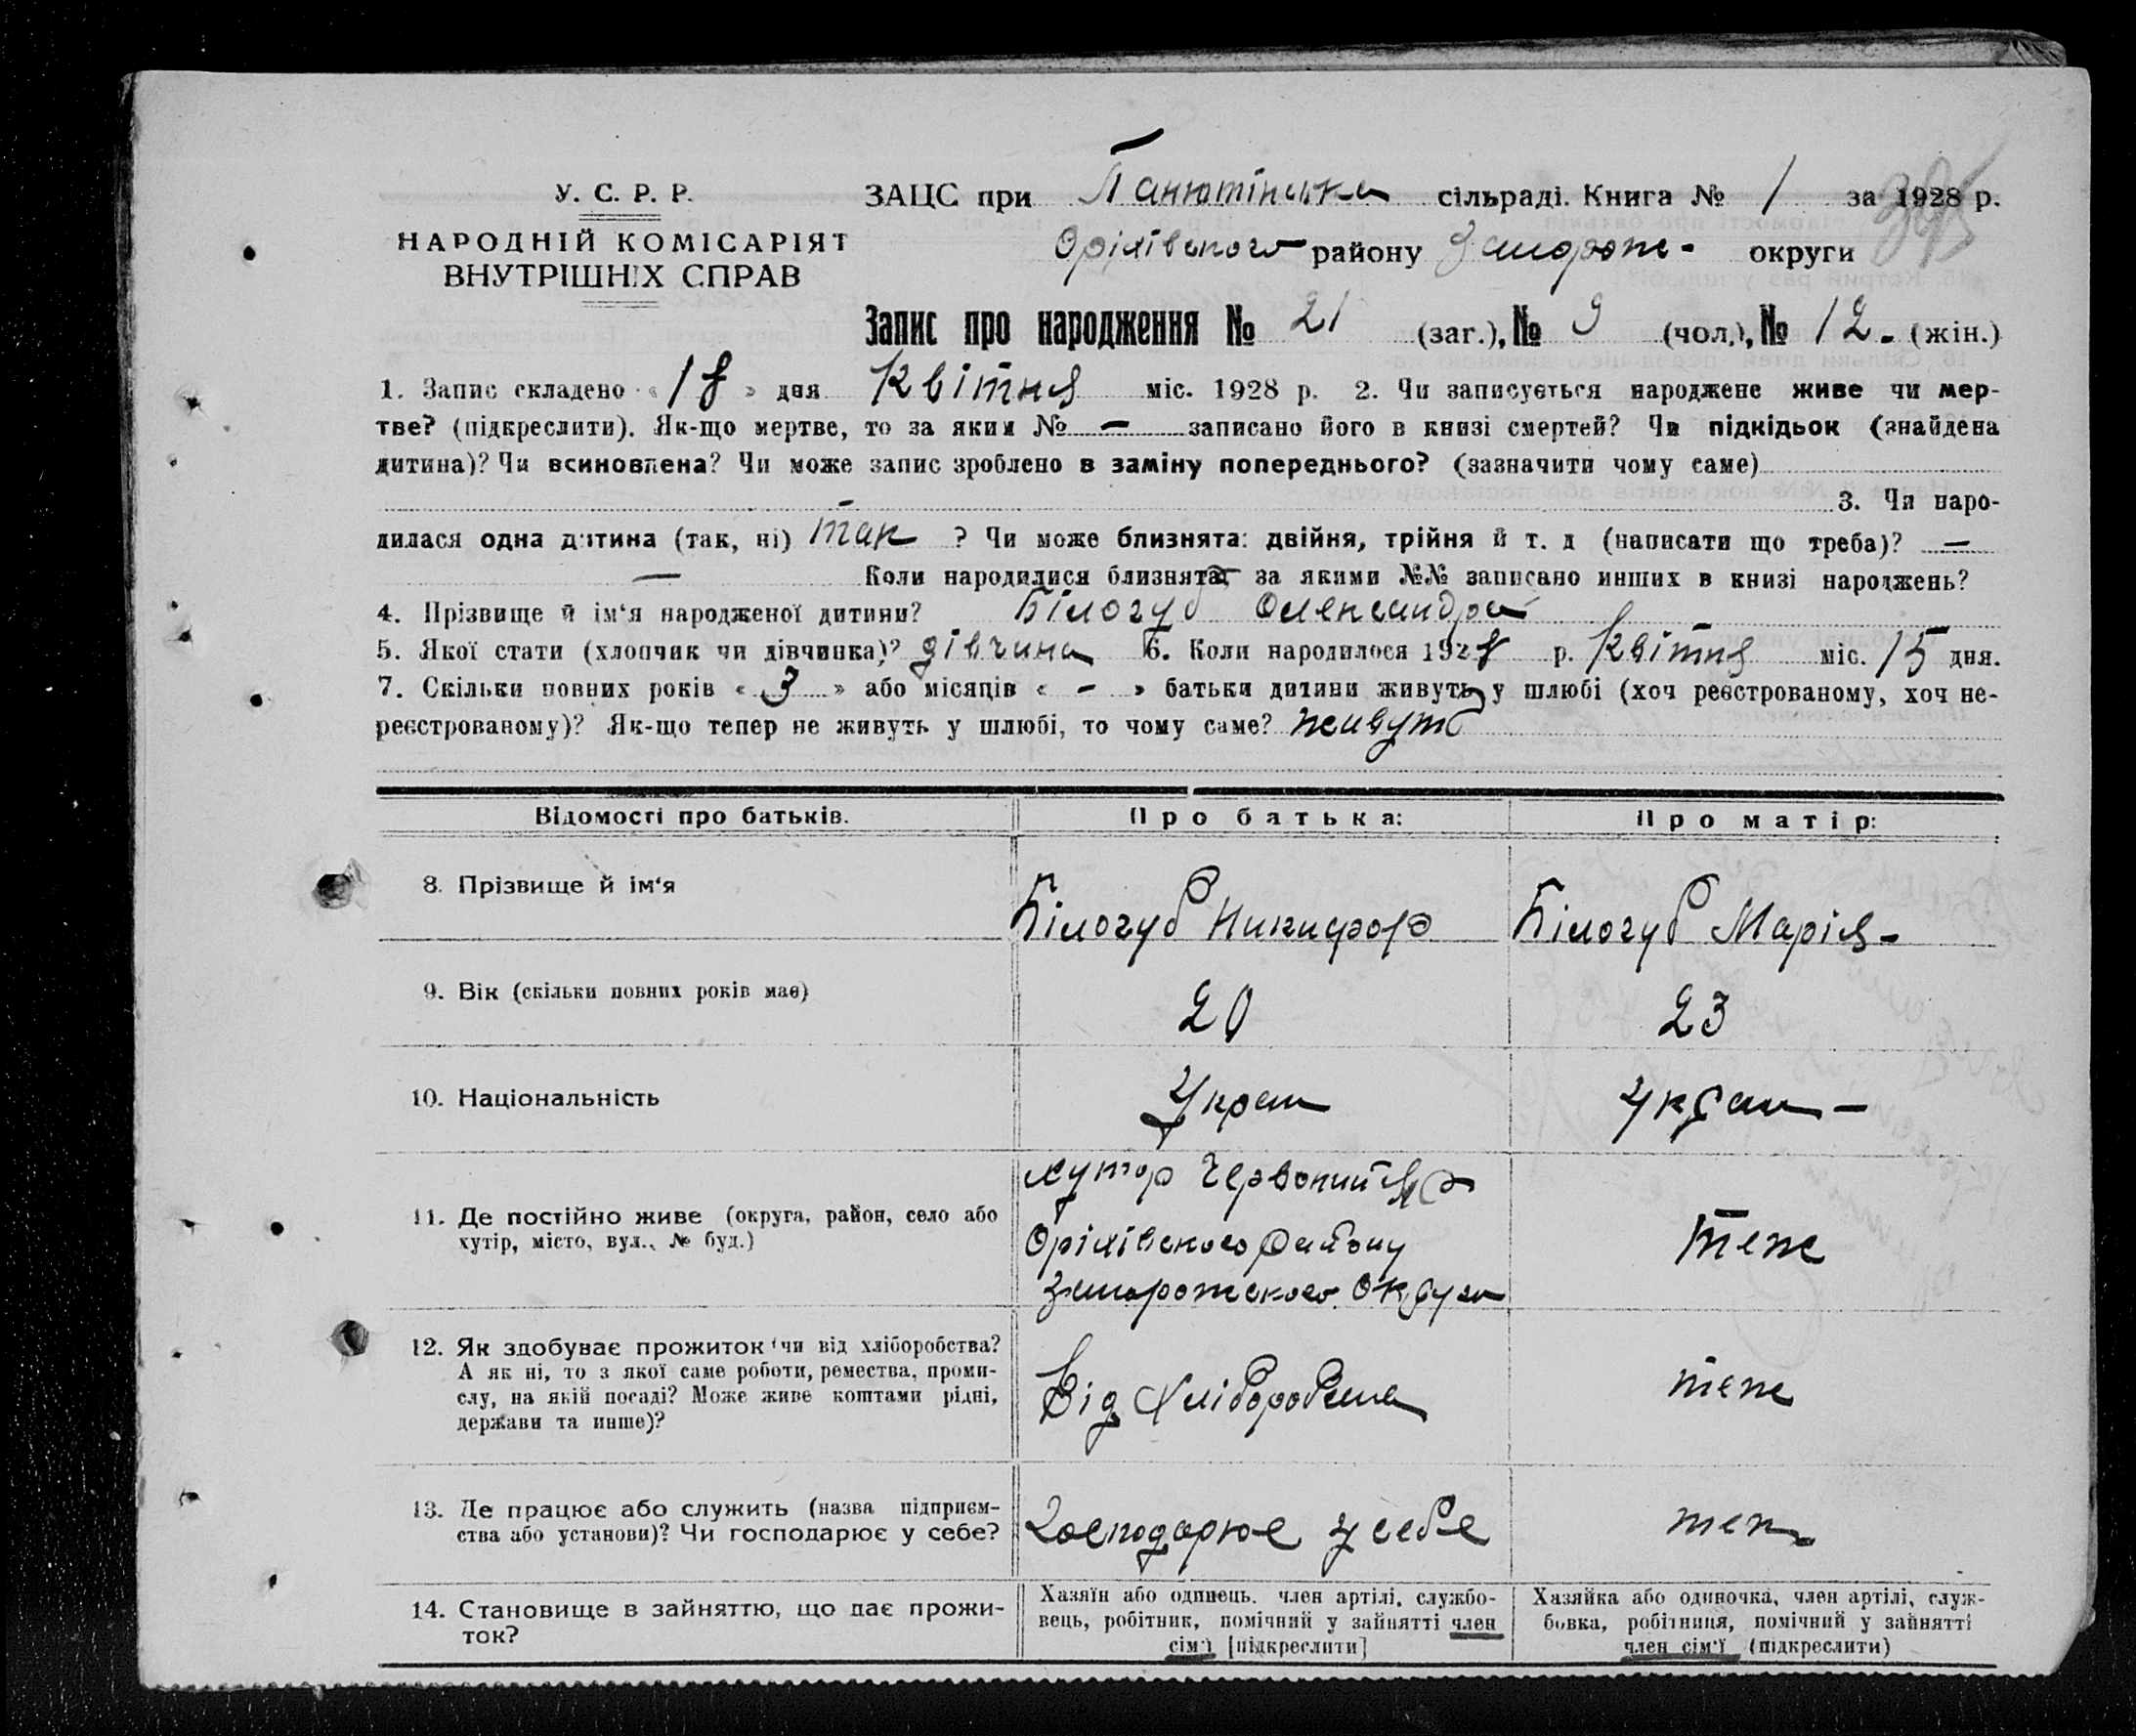 У. С. Р. Р.
НАРОДНІЙ КОМІСАРІЯТ
ВНУТРІШНІХ СПРАВ
ЗАЦС при Панютінська сільраді. Книга № 1 за 1928 р.
Оріхівського району Запорож- округи
Запис про народження № 21 (заг.), № 9 (чол.), № 12. (жін.)
1. Запис складено « 18 » дня Квітня міс. 1928 р. 2. Чи записується народжене живе чи мер-
тве? (підкреслити). Як-що мертве, то за яким № — записано його в книзі смертей? Чи підкідьок (знайдена
дитина)? Чи всиновлена? Чи може запис зроблено в заміну попереднього? (зазначити чому саме)
3. Чи наро-
дилася одна дитина (так, ні) так ? Чи може близнята: двійня, трійня й т. д (написати що треба)? —
— Коли народилися близнята, за якими №№ записано инших в книзі народжень?
4. Прізвище й ім‘я народженої дитини? Білогуб Олександра
5. Якої стати (хлопчик чи дівчинка)? дівчина 6. Коли народилося 1928 р. Квітня міс. 15 дня.
7. Скільки повних років « 3 » або місяців « - » батьки дитини живуть у шлюбі (хоч реєстрованому, хоч не-
реєстрованому)? Як-що тепер не живуть у шлюбі, то чому саме? живуть
Відомості про батьків. Про батька: Про матір:
8. Прізвище й ім‘я Білогуб Никифор Білогуб Марія-
9. Вік (скільки повних років має) 20 23
10. Національність Украй Украй —
11. Де постійно живе (округа, район, село або
хутір, місто, вул., № буд.)
хутор Червоний
Оріхівського району
Запорожского Округа
теж
12. Як здобуває прожиток (чи від хліборобства?
А як ні, то з якої саме роботи, ремества, проми-
слу, на якій посаді? Може живе коштами рідні,
держави та инше)?
Від Хліборобства
теж
13. Де працює або служить (назва підприєм-
ства або установи)? Чи господарює у себе?
Господарює у себе
теж
14. Становище в зайняттю, що дає прожи-
ток?
Хазяїн або одинець. член артілі, службо-
вець, робітник, помічний у зайнятті член
сім‘ї [підкреслити]
Хазяйка або одиночка, член артілі, служ-
бовка, робітниця, помічний у зайнятті
член сім‘ї (підкреслити)